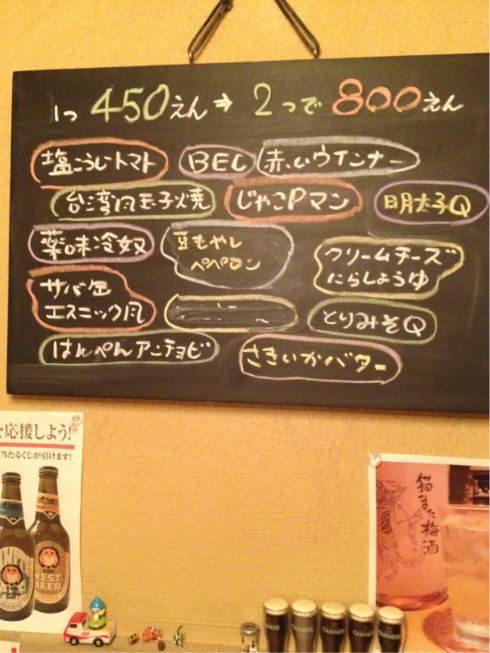 1つ 450えん➔ 2つで 800えん
塩こうじトマト
BEL
赤いウインナー
台湾風玉子焼
じゃこPマン
明太子Q
薬味冷奴
豆もやし
ペペロン
クリームチーズ
にらしょうゆ
サバ缶
エスニック風
とりみそQ
はんぺんアンチョビ
さきいかバター
を応援しよう!
当たるくじが引けます!
NEST
BEER
猫また梅酒
GUINNESS
GUINNESS
GUINNESS